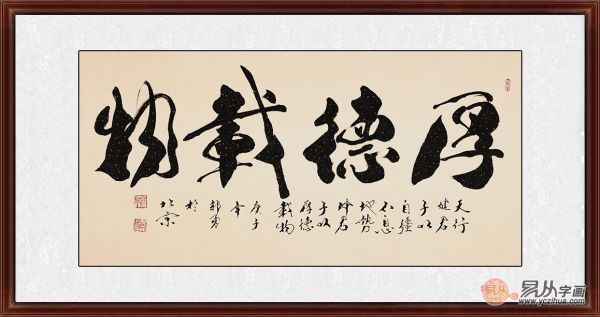 厚德載物
天行
健君
子以
自強
不息
地勢
坤君
子以
厚德
載物
庚子
於
北京
易从字画
www.yczihua.com